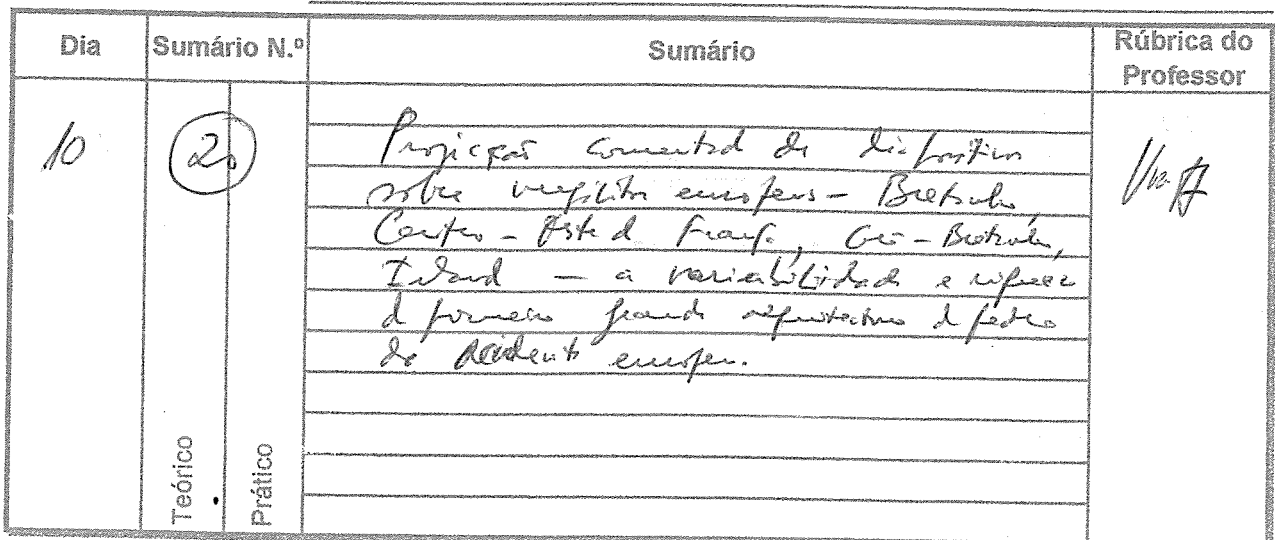 Dia Sumário N.º Sumário Rúbrica do Professor
10 2
Projecção comentada de diapositivos
sobre megálitos europeus - Bretanha,
Centro-Oeste de França, Grã-Bretanha,
Irlanda - a variabilidade e riqueza
da primeira grande arquitectura de pedra
do Ocidente europeu.
Teórico
Prático